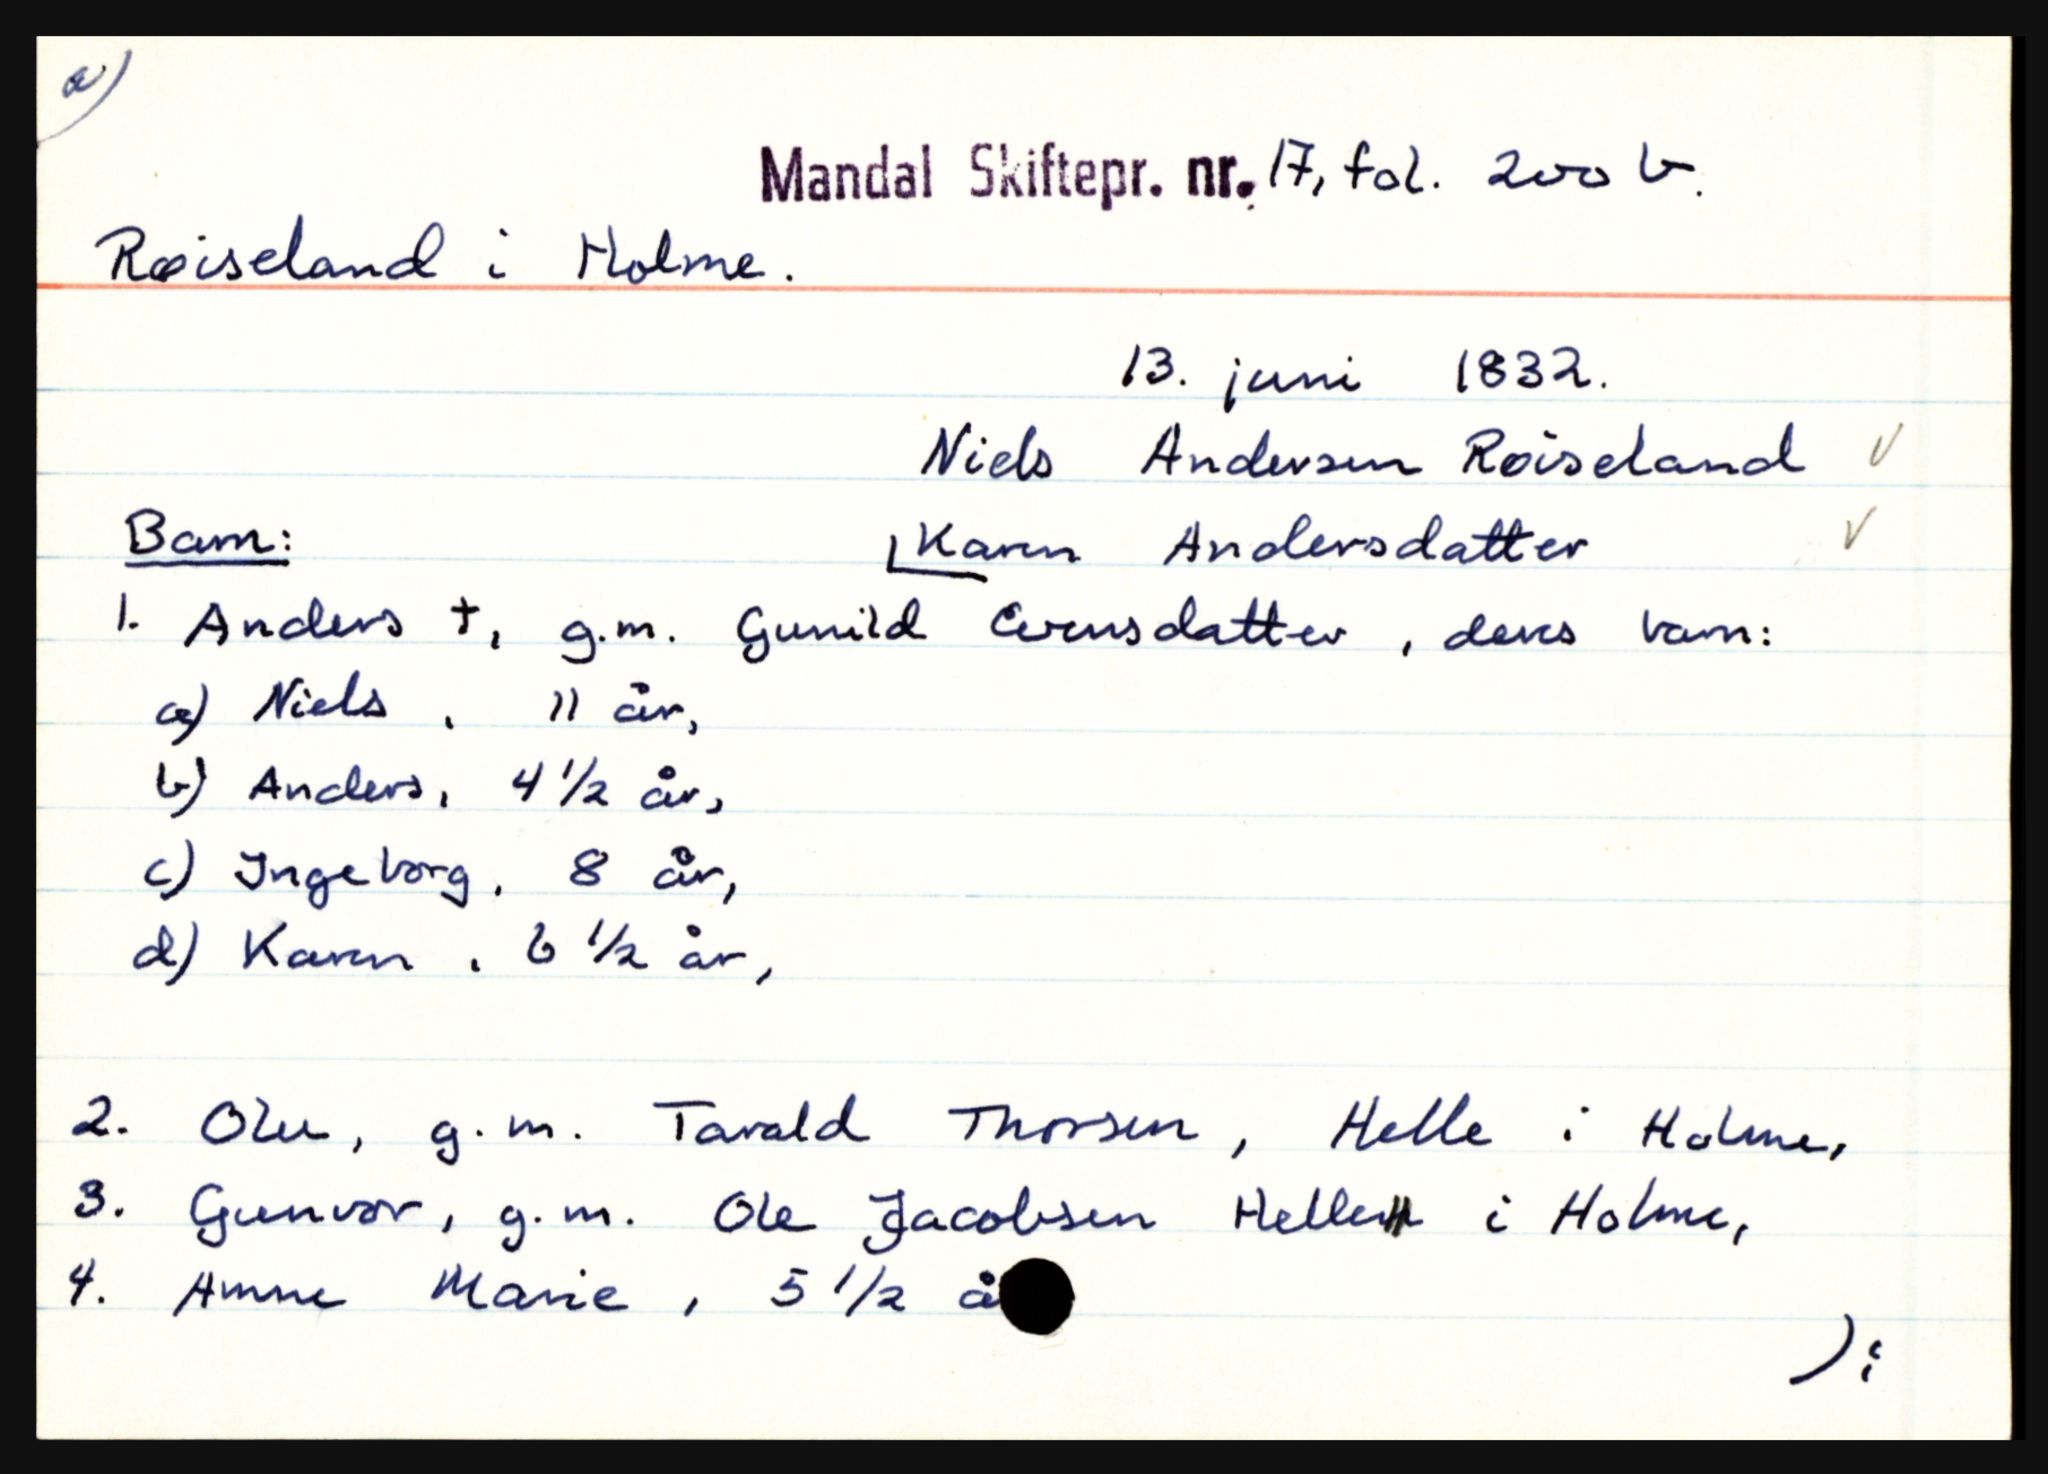 a)
Mandal Skiftepr. nr. 17, fol. 200 b.
Røiseland i Holme.
13. juni 1832.
Niels Andersen Røiseland ✓
Karen Andersdatter ✓
Barn:
1. Anders †, g.m. Gunild Evensdatter, deres barn:
a) Niels, 11 år,
b) Anders, 4 1/2 år,
c) Ingeborg, 8 år,
d) Karen, 6 1/2 år,
2. g.m. Tarald Thorsen, Helle i Holme,
3. Gunvor, g.m. Ole Jacobsen Helle i Holme,
4. Anne Marie, 5 1/2 å